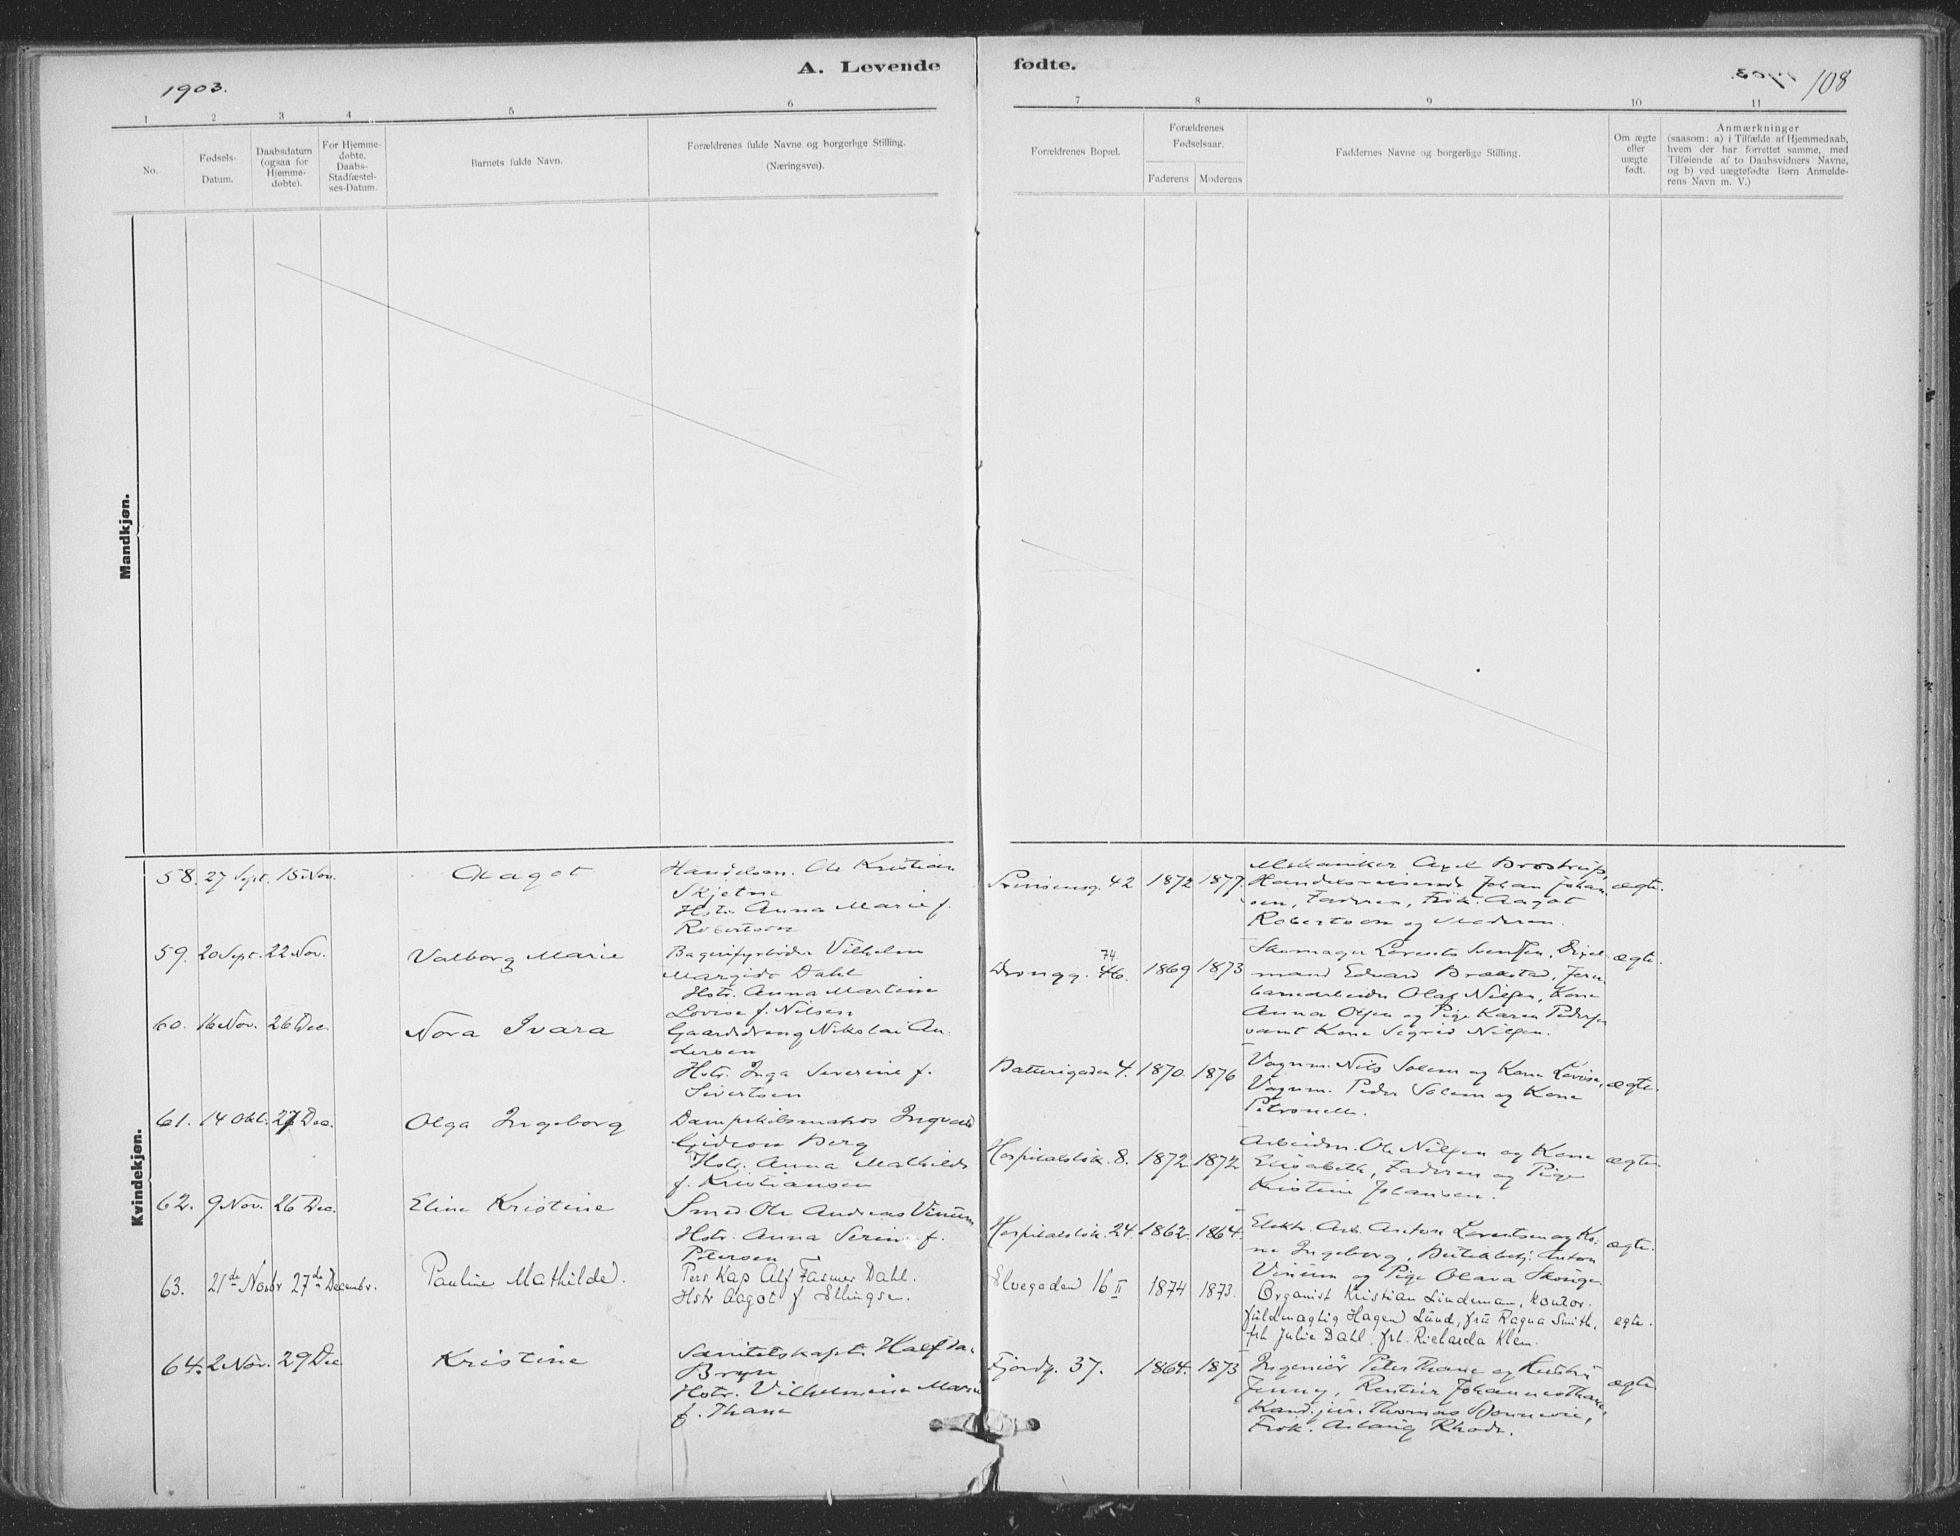 1903.
A. Levende fødte.
108
1 2 3 4 5 6 7 8 9 10 11
No.
Fødsels-
Datum.
Daabsdatum
(ogsaa for
Hjemme-
døbte).
For Hjemme-
døbte.
Daabs-
Stadfæstel-
ses-Datum.
Barnets fulde Navn.
Forældrenes fulde Navne og borgerlige Stilling.
(Næringsvei).
Forældrenes Bopæl.
Forældrenes
Fødselsaar.
Faderens Moderens
Faddernes Navne og borgerlige Stilling.
Om ægte
eller
uægte
født.
Anmærkninger
(saasom: a) i Tilfælde af Hjemmedaab,
hvem der har forrettet samme, med
Tilføiende af to Daabsvidners Navne,
og b) ved uægtefødte Børn Anmelde-
rens Navn m. V.)
Mandkjøn.
Kvindekjøn.
58. 27 Sept. 15 Nov. Aagot
Handelsm. Ole Kristian
Skjetne
Hstr. Anna Marie f.
Robertson
Prinsensg. 42 1872 1877.
Mekaniker Axel Brostrup,
Handelsreisende Johan Johan
sen, Faderen, Frøk. Aagot
Robertson og Moderen.
ægte.
59. 20 Sept. 22 Nov. Valborg Marie
Bagerifyrbøder Vilhelm
Margido Dahl
Hstr. Anna Martine
Lovise f. Nilsen
Drongg. 74 1869 1873
Skomager Lorents Svendsen, Dixel
mand Edvard Brækstad, Jern
banearbeider Olaf Nilsen, Kone
Anna Olsen og Pige Karen Pedersen
samt Kone Sigrid Nilsen.
ægte.
60. 16 Nov. 26 Dec. Nora Ivara
Gaardsdreng Nikolai An-
dersen
Hstr. Inga Severine f.
Sivertsen
Batterigaden 4. 1870. 1876
Vognm. Nils Solem og Kone Lovise,
Vognm. Peder Solem og Kone
Petronelle.
ægte.
61. 14 Okt. 27 Dec. Olga Ingeborg
Dampskibsmatros Ingvald
Gideon Berg
Hstr. Anna Mathilde
f. Kristiansen
Hospitalsløk. 8. 1872. 1872
Arbeider. Ole Nilsen og Kone
Elisabeth, Faderen og Pige
Kristine Johansen.
ægte.
62. 9 Nov. 26 Dec. Eline Kristine
Smed Ole Andreas Vinum
Hstr. Anna Serine f.
Petersen
Hospitalsløk. 24. 1862. 1864.
Elektr. Arb. Anton Lorentsen og Ko-
ne Ingeborg, Butikbetj. Anton
Vinum og Pige Olava
ægte.
63. 21de Novbr 27de Decembr. Pauline Mathilde.
Pers Kap Alf Fasmer Dahl.
Hstr Aagot f Ellingsen.
Elvegaden 16 II 1874 1873.
Organist Kristian Lindeman, kontor.
fuldmægtig Hagen Lund, fru Ragna Smith,
frk Julie Dahl, frk. Richarda Klem.
egte.
64. 2 Nov. 29 Dec Kristine
Sanitetskapt. Halfdan
Bryn
Hstr. Vilhelmine Marie
f. Thane
Fjordg. 37. 1864. 1873
Ingeniør Peter Thane og Hustru
Jenny, Rentier Johannes Thane,
Kand. jur. Thomas Bonnevie,
Frøk. Aslaug Rhode.
ægte